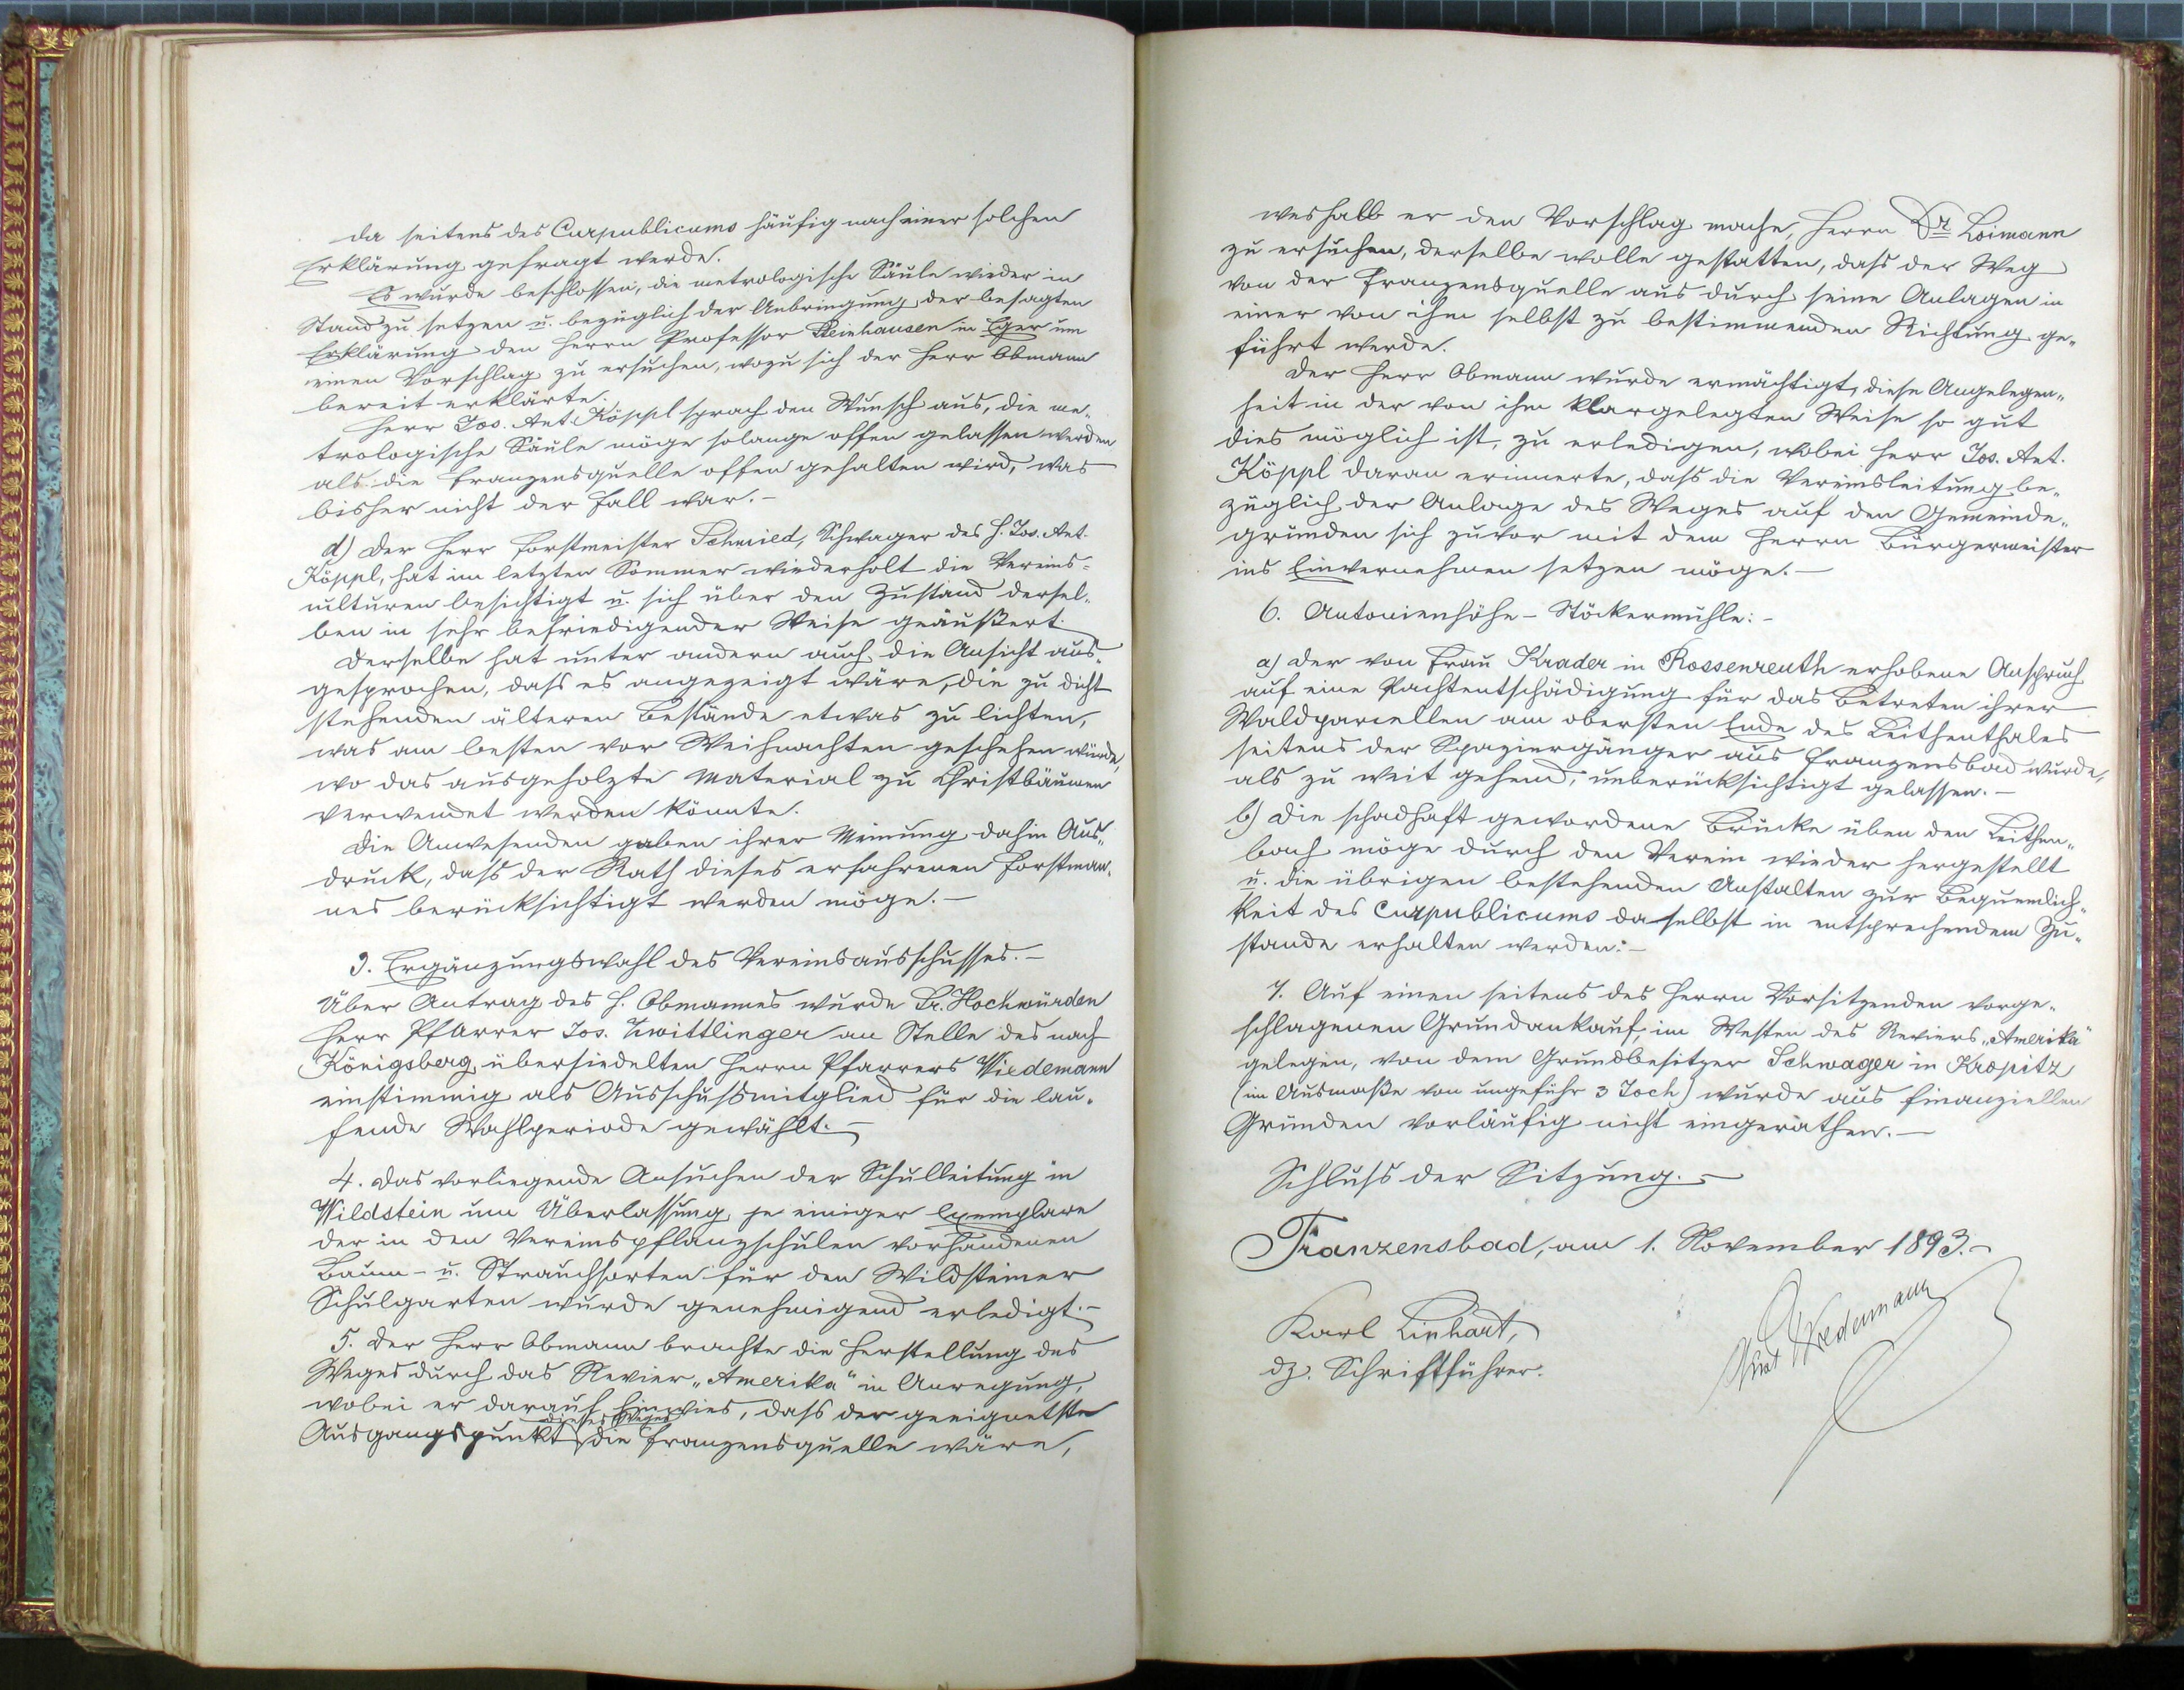 da seitens des Curpublicums häufig nach einer solchen
Erklärung gefragt werde.
Es wurde beschlossen, die metrologische Säule wieder in
Stand zu setzen u. bezüglich der Anbringung der besagten
Erklärung den Herrn Professor Reinhausen in Eger um
einen Vorschlag zu ersuchen, wozu sich der Herr Obmann
bereit erklärte.
Herr Jos. Ant. Köppl sprach den Wunsch aus, die me-
trologische Säule möge solange offen gelassen werden
als die Franzensquelle offen gehalten wird, was
bisher nicht der Fall war.-
d) Der Herr Forstmeister Schmied, Schwager des H. Jos. Ant.
Köppl, hat im letzten Sommer wiederholt die Vereins-
culturen besichtigt u. sich über den Zustand dersel-
ben in sehr befriedigender Weise geäußert.
Derselbe hat unter andern auch die Ansicht aus-
gesprochen, dass es angezeigt wäre, die zu dicht
stehenden älteren Bestände etwas zu lichten,
was am besten vor Weihnachten geschehen würde,
wo das ausgeholzte Material zu Christbäumen
verwendet werden könnte.
Die Anwesenden gaben ihrer Meinung dahin Aus-
druck, dass der Rath dieses erfahrenen Forstman-
nes berücksichtigt werden möge.-
3. Ergänzungswahl des Vereinsausschusses.-
Über Antrag des H. Obmannes wurde Sr. Hochwürden
Herr Pfarrer Jos. Zwittlinger an Stelle des nach
Königsberg übersiedelten Herrn Pfarrers Wiedemann
einstimmig als Ausschußmitglied für die lau-
fende Wahlperiode gewählt.-
4. Das vorliegende Ansuchen der Schulleitung in
Wildstein um Überlassung je einiger Exemplare
der in den Vereinspflanzschulen vorhandenen
Baum- u. Strauchsorten für den Wildsteiner
Schulgarten wurde genehmigend erledigt.-
5. Der Herr Obmann brachte die Herstellung des
Weges durch das Revier „Amerika" in Anregung,
wobei er darauf hinwies, dass der geeignetste
dieses Weges
Ausgangspunkt die Franzensquelle wäre,
weshalb er den Vorschlag mache, Herrn Dr Loimann
zu ersuchen, derselbe wolle gestatten, dass der Weg
von der Franzensquelle aus durch seine Anlagen in
einer von ihm selbst zu bestimmenden Richtung ge-
führt werde.
Der Herr Obmann wurde ermächtigt, diese Angelegen-
heit in der von ihm klargelegten Weise so gut
dies möglich ist, zu erledigen, wobei Herr Jos. Ant.
Köppl daran erinnerte, dass die Vereinsleitung be-
züglich der Anlage des Weges auf den Gemeinde-
gründen sich zuvor mit dem Herrn Bürgermeister
ins Einvernehmen setzen möge.-
6. Antonienhöhe - Stöckermühle:-
a) Der von Frau Krader in Rossenreuth erhobene Anspruch
auf eine Pachtentschädigung für das Betreten ihrer
Waldparcellen am obersten Ende des Leithenthales
seitens der Spaziergänger aus Franzensbad wurde,
als zu weit gehend, unberücksichtigt gelassen.-
b) Die schadhaft gewordene Brücke üben den Leithen-
bach möge durch den Verein wieder hergestellt
u. die übrigen bestehenden Anstalten zur Bequemlich-
keit des Curpublicums daselbst in entsprechendem Zu-
stande erhalten werden:-
7. Auf einen seitens des Herrn Vorsitzenden vorge-
schlagenen Grundankauf, im Westen des Reviers „Amerika"
gelegen, von dem Grundbesitzer Schwager in Kropitz
(im Ausmaße von ungefähr 3 Joch) wurde aus finanziellen
Gründen vorläufig nicht eingerathen.-
Schluss der Sitzung.-
Franzensbad, am 1. November 1893.-
Karl Linhart,
dz. Schriftführer.
Wiedermann